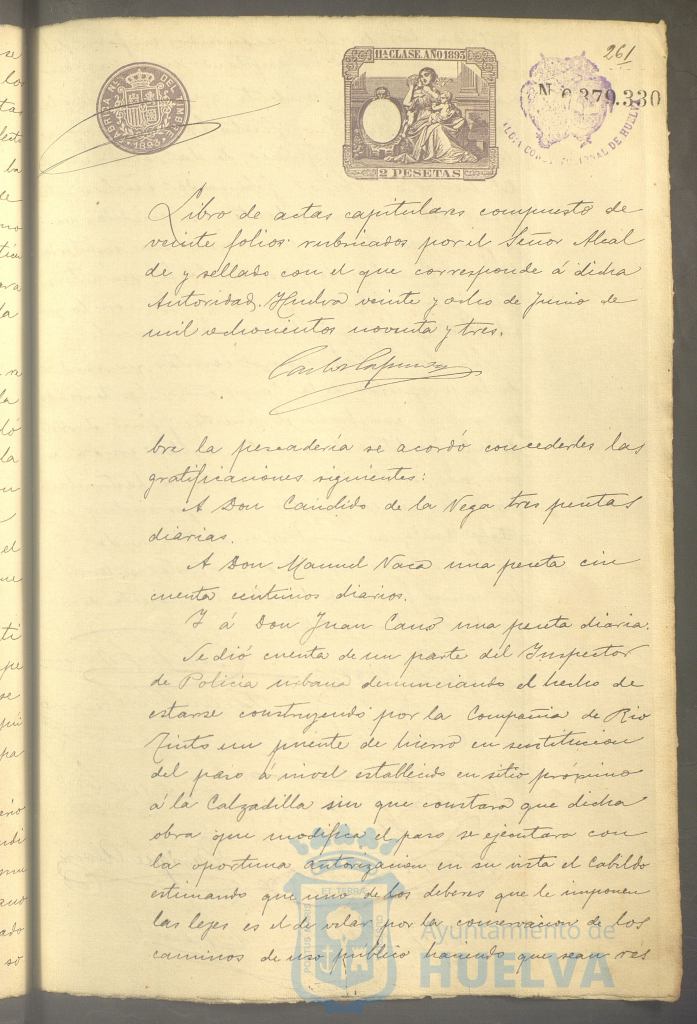 261
FABRICA NAL DEL TIMBRE
1893
11ª CLASE. AÑO 1893
2 PESETAS
Nº 0.379.330
ALCALDIA CONSTITUCIONAL DE HUELVA
Libro de actas capitulares compuesto de
veinte folios rubricados por el Señor Alcal
de y sellado con el que corresponde á dicha
Autoridad. Huelva veinte y ocho de Junio de
mil ochocientos noventa y tres.
bre la pescadería se acordó concederles las
gratificaciones siguientes:
A Don Candido de la Vega tres pesetas
diarias.
A Don Manuel Vaca una peseta cin
cuenta céntimos diarios.
Y á Don Juan Cano una peseta diaria.
Se dió cuenta de un parte del Inspector
de Policia urbana denunciando el hecho de
estarse construyendo por la Compañia de Rio
Tinto un puente de hierro en sustitucion
del paso á nivel establecido en sitio próximo
á la Calzadilla sin que constara que dicha
obra que modifica el paso se ejecutara con
la oportuna autorizacion en su vista el Cabildo
estimando que uno de los deberes que le imponen
las leyes es el de velar por la conservacion de los
caminos de uso público haciendo que sean res
Ayuntamiento de
HUELVA